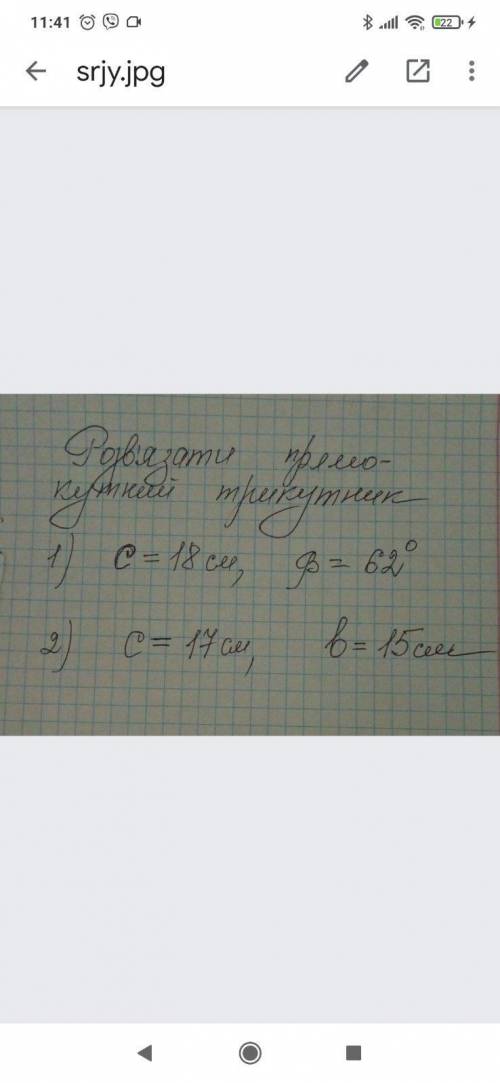 11:41
22
srjy.jpg
Розв'язати прямо-
кутний трикутник
1) C = 18 см, β = 62°
2) C = 17 см, b = 15 см